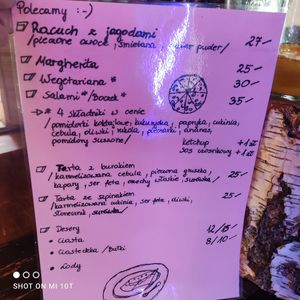 Polecamy :-)
Racuch z jagodami 27-
/pieczone owoce, śmietana, cukier puder/
Margherita 25-
Wegetariana * 30-
Salami* /Boczek* 35-
* 4 składniki w cenie
/pomidorki koktajlowe, kukurydza, papryka, cukinia,
cebula, oliwki, rukola, pieczarki, ananas,
pomidory suszone/
ketchup +1 zł
sos czosnkowy +1 zł
Tarta z burakiem 25-
/karmelizowana cebula, pieczona gruszka,
kapary, ser feta, orzechy włoskie, surówka/
Tarta ze szpinakiem 25-
/karmelizowana cukinia, ser feta, oliwki,
słonecznik, surówka/
Desery
ciasta 12/15-
ciasteczka /Bułki 8/10-
Lody
SHOT ON MI 10T